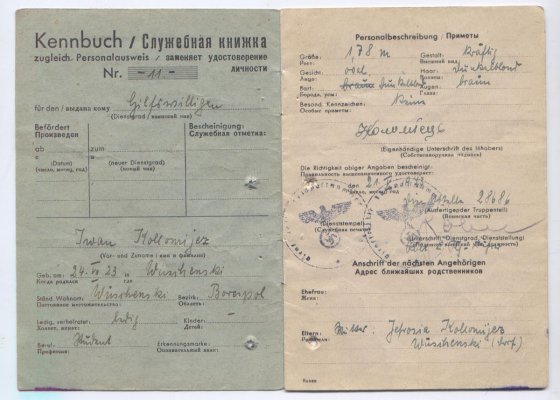 Kennbuch / Служебная книжка
zugleich Personalausweis / заменяет удостоверение
Nr. - 11 - личности
für den / выдана кому Hilfswilligen
(Dienstgrad / воинский чин)
Befördert
Произведен
ab zum
(Datum) (neuer Dienstgrad)
(число, месяц, год) (новый чин)
Bescheinigung:
Служебная отметка:
Iwan Kollomijez
(Vor- und Zuname / имя и фамилия)
Geb. am: 24. VII 23 in Wüschenski
Когда родился где
Ständ Wohnort: Wüschenski Bezirk: Borespol
Постоянное местожительство: Область:
Ledig, verheiratet: ledig Kinder:
Холост, женат: Детей:
Beruf: Student Erkennungsmarke:
Профессия: Опознавательный знак:
Personalbeschreibung / Приметы
Größe: 1,78 m Gestalt: kräftig
Рост: Внешний вид:
Gesicht: oval Haar: dunkelblond
Лицо: Волосы:
Bart: braun dunkelblond Augen: braun
Борода, усы: Глаза:
Besond. Kennzeichen: keine
Особые приметы:
Коломієць
(Eigenhändige Unterschrift des Inhabers)
(Собственноручная подпись)
Die Richtigkeit obiger Angaben bescheinigt:
Правильность вышеизложенного удостоверяет:
28686
(Ausfertigender Truppenteil)
(Воинская часть)
(Dienststempel)
(Служебная печать)
(Unterschrift, Dienstgrad, Dienststellung)
Anschrift der nächsten Angehörigen
Адрес ближайших родственников
Ehefrau:
Жена:
Eltern: Mutter: Jefrosia Kollomijez
Родители: Wüschenski (Dorf)